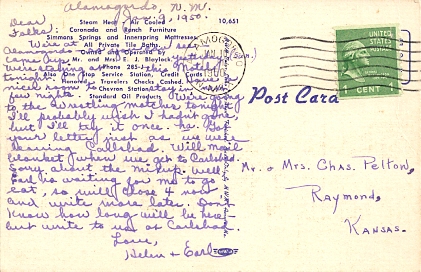 Alamogordo, N.M.
Nov. 9, 1950.
Dear Folks:
Steam Heat Air Cooled 10,651
Coronado and Ranch Furniture
Simmons Springs and Innerspring Mattresses
All Private Tile Baths
Owned and Operated by
Mr. and Mrs. E. J. Blaylock
Phone 285-J
Also One Stop Service, Credit Cards
Honored, Travelers Checks Cashed
Chevron Station
Standard Oil Products
We're at
Alamogordo
Came over yesterday (Sun.)
We're staying at this
tonight. Have a
nice room to stay in
few nights. We're going
to the Wrestling matches tonight
I'll probably wish I hadn't gone
but I'll try it once. Got
your letter just as we were
leaving Carlsbad. Will mail
blanket when we get to Carlsbad.
Sorry about the mixup. Well
Earl is waiting for me to go
eat, so will close now
and write more later. Don't
know how long will be here
but write to us at Carlsbad.
Love,
Helen & Earl
UNITED STATES POSTAGE
1 CENT
Post Card
Mr. & Mrs. Chas. Pelton,
Raymond,
Kansas.